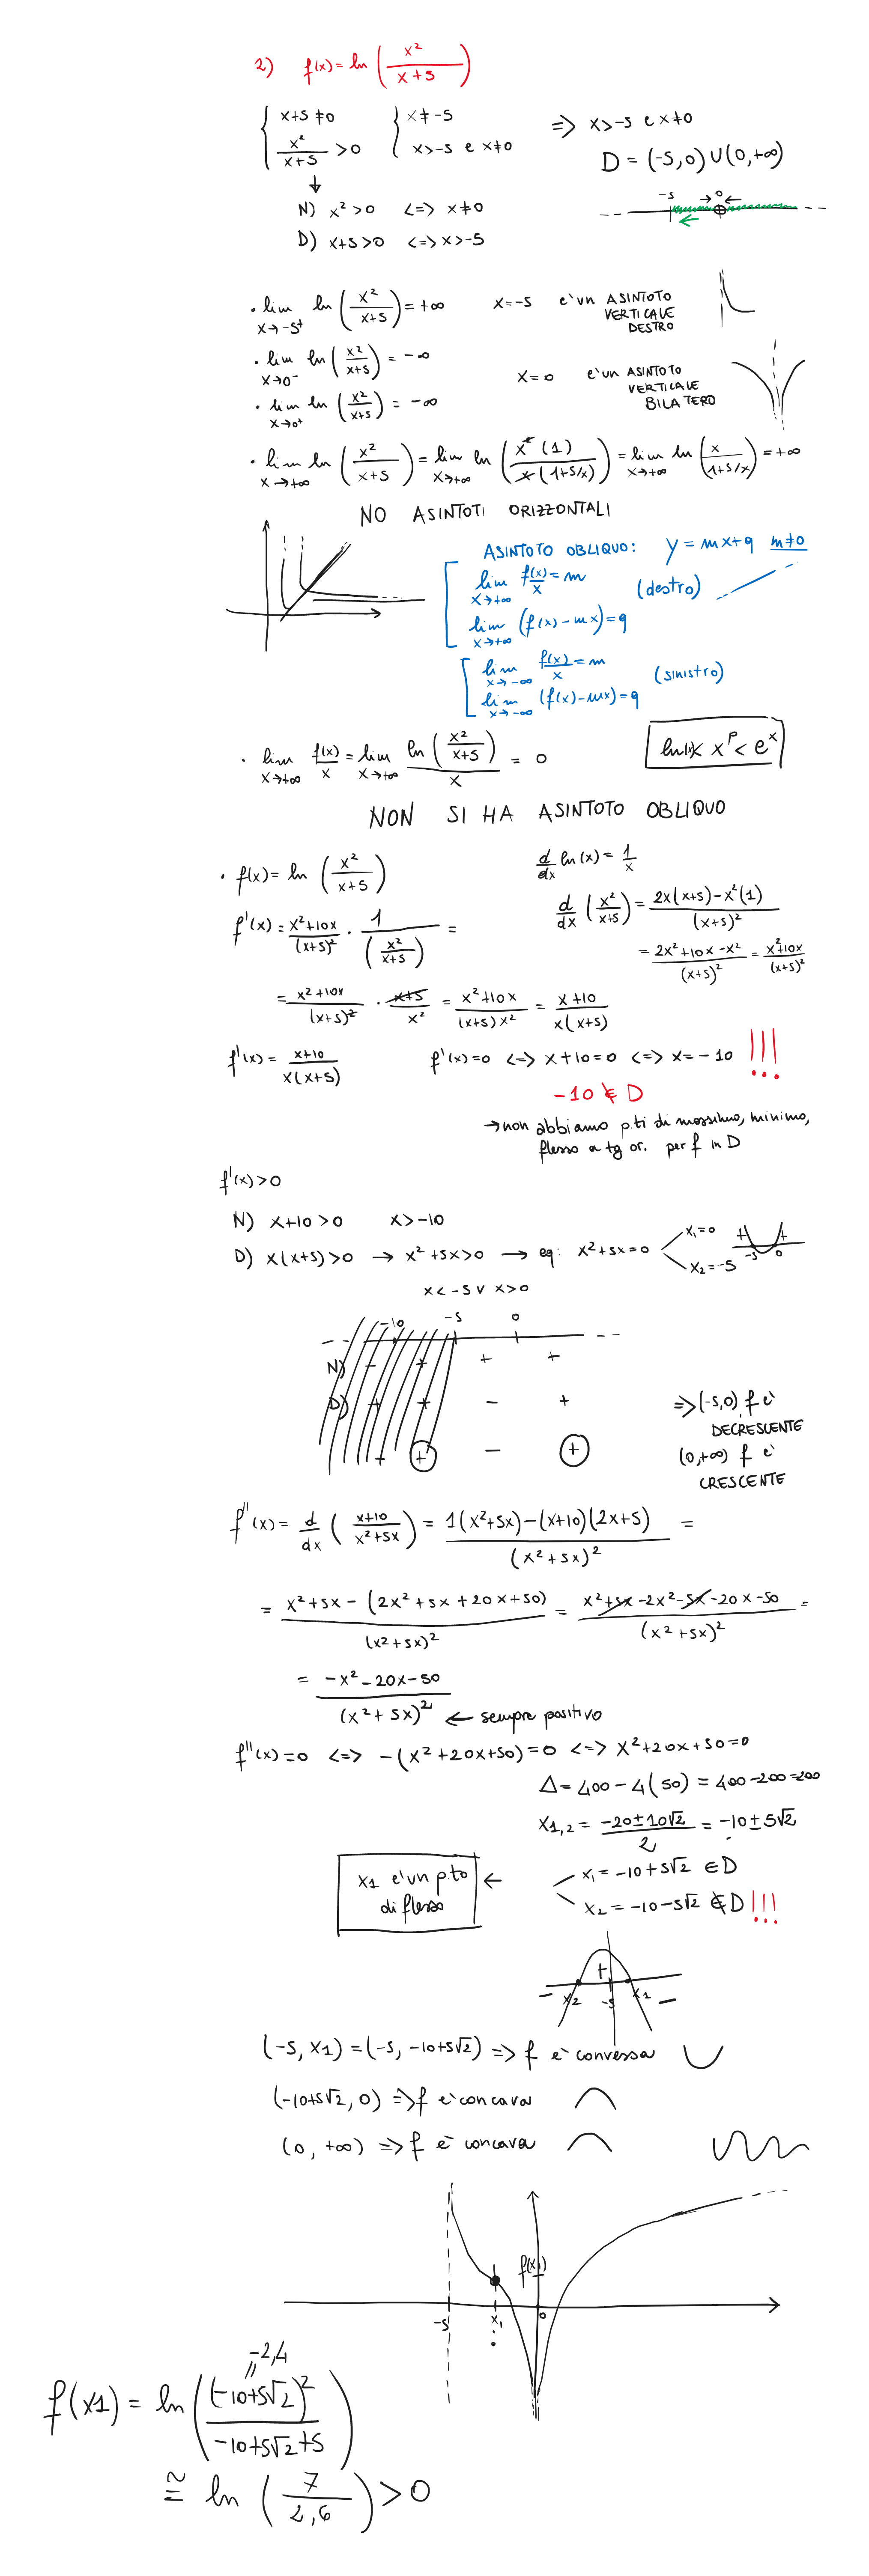 2) f(x) = ln (x²/(x+5))
{ x+5 ≠ 0 { x ≠ -5 => x > -5 e x ≠ 0
x²/(x+5) > 0 x > -5 e x ≠ 0 D = (-5,0) ∪ (0,+∞)
↓
N) x² > 0 <=> x ≠ 0
-5 → 0 ←
D) x+5 > 0 <=> x > -5
• lim x→-5⁺ ln (x²/(x+5)) = +∞ x = -5 e' un ASINTOTO VERTICALE DESTRO
• lim x→0⁻ ln (x²/(x+5)) = -∞
x = 0 e' un ASINTOTO VERTICALE BILATERO
• lim x→0⁺ ln (x²/(x+5)) = -∞
• lim x→+∞ ln (x²/(x+5)) = lim x→+∞ ln (x²(1)/(x(1+5/x))) = lim x→+∞ ln (x/(1+5/x)) = +∞
NO ASINTOTI ORIZZONTALI
ASINTOTO OBLIQUO: y = mx+q m≠0
lim x→+∞ f(x)/x = m (destro)
lim x→+∞ (f(x) - mx) = q
lim x→-∞ f(x)/x = m (sinistro)
lim x→-∞ (f(x) - mx) = q
• lim x→+∞ f(x)/x = lim x→+∞ ln (x²/(x+5))/x = 0 ln(x) < xᵖ < eˣ
NON SI HA ASINTOTO OBLIQUO
• f(x) = ln (x²/(x+5)) d/dx ln(x) = 1/x
d/dx (x²/(x+5)) = (2x(x+5) - x²(1))/(x+5)²
f'(x) = (x²+10x)/(x+5)² · 1/(x²/(x+5)) =
= (2x²+10x-x²)/(x+5)² = (x²+10x)/(x+5)²
= (x²+10x)/(x+5)² · (x+5)/x² = (x²+10x)/((x+5)x²) = (x+10)/(x(x+5))
f'(x) = (x+10)/(x(x+5)) f'(x) = 0 <=> x+10 = 0 <=> x = -10 !!!
-10 ∉ D
→ non abbiamo p.ti di massimo, minimo,
flesso a tg or. per f in D
f'(x) > 0
N) x+10 > 0 x > -10
D) x(x+5) > 0 → x²+5x > 0 → eq: x²+5x = 0 x₁ = 0 x₂ = -5 + + -5 0
x < -5 v x > 0
-10 -5 0
N) - + + +
D) + + - + => (-5,0) f e' DECRESCENTE
- + - + (0,+∞) f e' CRESCENTE
f''(x) = d/dx ((x+10)/(x²+5x)) = (1(x²+5x) - (x+10)(2x+5))/(x²+5x)² =
= (x²+5x - (2x²+5x+20x+50))/(x²+5x)² = (x²+5x-2x²-5x-20x-50)/(x²+5x)² =
= (-x²-20x-50)/(x²+5x)² ← sempre positivo
f''(x) = 0 <=> -(x²+20x+50) = 0 <=> x²+20x+50 = 0
Δ = 400 - 4(50) = 400-200=200
x1,2 = (-20±10√2)/2 = -10±5√2
x1 e' un p.to di flesso ← x₁ = -10+5√2 ∈ D
x₂ = -10-5√2 ∉ D !!!
- x2 + -5 x1 -
(-5, x1) = (-5, -10+5√2) => f e' convessa
(-10+5√2, 0) => f e' concava
(0, +∞) => f e' concava
f(x₁)
-5 x₁ 0
-2,4
f(x1) = ln ((-10+5√2)²/(-10+5√2+5))
≅ ln (7/2,6) > 0